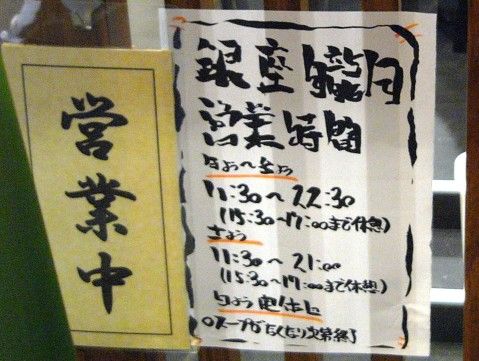 営業中
銀座 朧月
営業時間
月よう〜金よう
11:30〜22:30
(15:30〜17:00まで休憩)
土よう
11:30〜21:00
(15:30〜17:00まで休憩)
日よう 定休日
○スープがなくなり次第終了